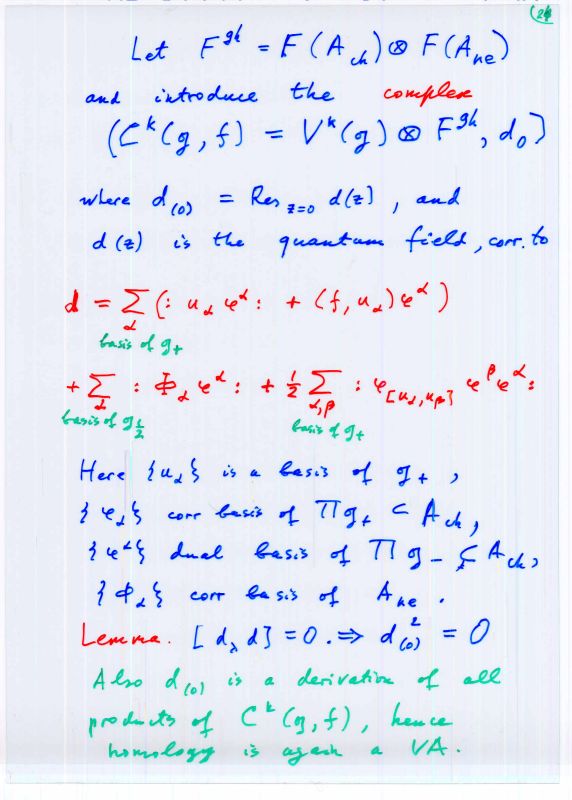 24
Let F^{gh} = F(A_{ch}) ⊗ F(A_{ne})
and introduce the complex
(C^k(g, f) = V^k(g) ⊗ F^{gh}, d_0)
where d_{(0)} = Res_{z=0} d(z), and
d(z) is the quantum field, corr. to
d = Σ_α (: u_α φ^α : + (f, u_α) φ^α)
basis of g_+
+ Σ_α : Φ_α φ^α : + ½ Σ_{α,β} : φ_{[u_α, u_β]} φ^β φ^α :
basis of g_{½} basis of g_+
Here {u_α} is a basis of g_+ ,
{φ_α} corr basis of Πg_+ ⊂ A_{ch},
{φ^α} dual basis of Πg_- ⊂ A_{ch},
{Φ_α} corr basis of A_{ne} .
Lemma. [d_λ d] = 0. ⇒ d_{(0)}^2 = 0
Also d_{(0)} is a derivation of all
products of C^k(g, f), hence
homology is again a VA.